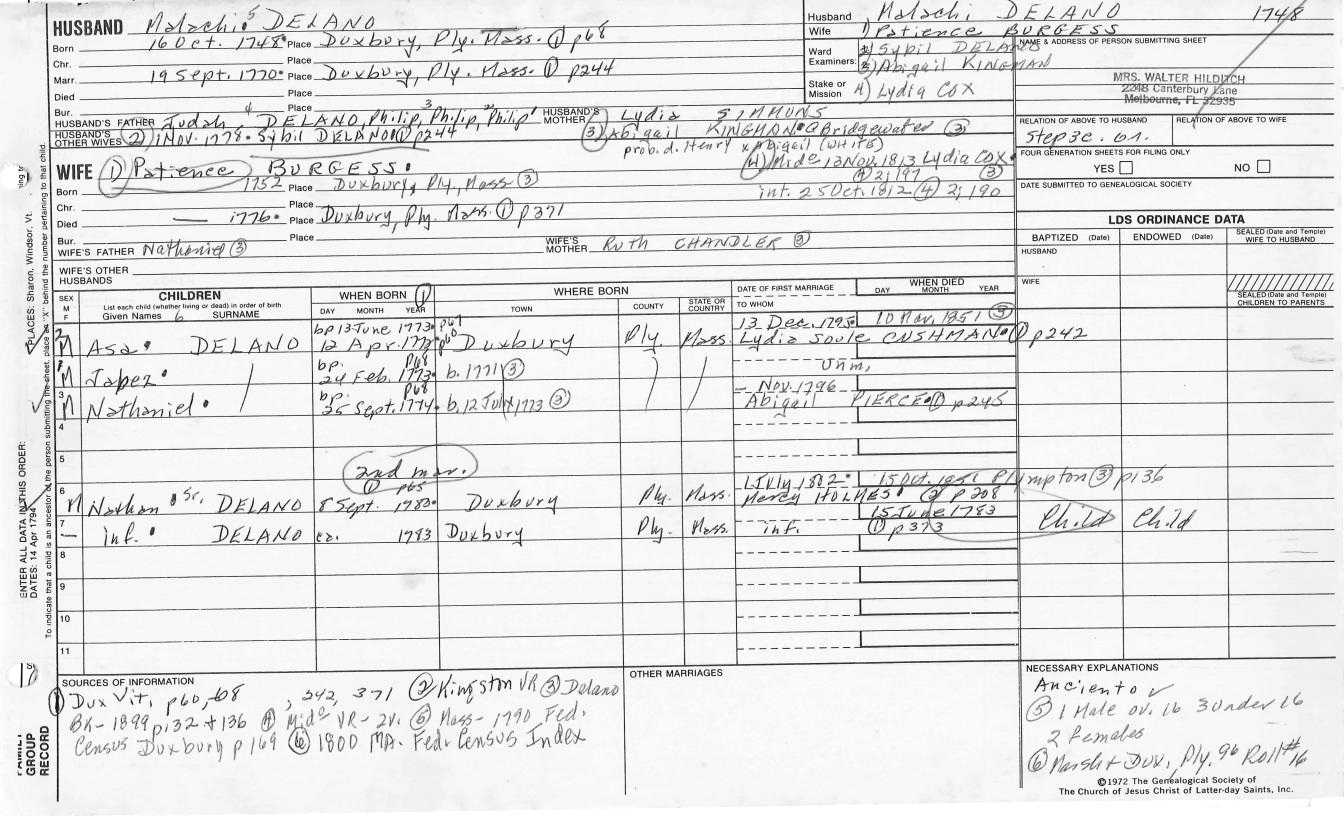 HUSBAND Malachi 5 DELANO
Born 16 Oct. 1748 Place Duxbury, Ply. Mass. ① p68
Chr. Place
Marr. 19 Sept. 1770 Place Duxbury, Ply. Mass. ① p244
Died Place
Bur. Place
HUSBAND'S FATHER Judah 4 DELANO, Philip, 3 Philip, 2 Philip 1 HUSBAND'S MOTHER Lydia SIMMONS
HUSBAND'S OTHER WIVES ② 1 Nov. 1778 Sybil DELANO ① p244 ③ Abigail KINGMAN @ Bridgewater ③
prob. d. Henry x Abigail (WHITE)
④ Midº 13 Nov. 1813 Lydia COX
④ 2; 197 ③
int. 25 Oct. 1812 ④ 2; 190
Husband Malachi DELANO 1748
Wife 1) Patience BURGESS
Ward 2) Sybil DELANO
Examiners: 3) Abigail KINGMAN
Stake or Mission 4) Lydia COX
NAME & ADDRESS OF PERSON SUBMITTING SHEET
MRS. WALTER HILDITCH
2248 Canterbury Lane
Melbourne, FL 32935
RELATION OF ABOVE TO HUSBAND RELATION OF ABOVE TO WIFE
FOUR GENERATION SHEETS FOR FILING ONLY
YES NO
DATE SUBMITTED TO GENEALOGICAL SOCIETY
LDS ORDINANCE DATA
BAPTIZED (Date) ENDOWED (Date) SEALED (Date and Temple) WIFE TO HUSBAND
HUSBAND
WIFE
SEALED (Date and Temple) CHILDREN TO PARENTS
WIFE 1) Patience BURGESS
Born 1752 Place Duxbury, Ply, Mass ③
Chr. Place
Died — 1776 Place Duxbury, Ply. Mass. ① p371
Bur. Place
WIFE'S FATHER Nathaniel ③ WIFE'S MOTHER Ruth CHANDLER ③
WIFE'S OTHER HUSBANDS
SEX M F
CHILDREN
List each child (whether living or dead) in order of birth
Given Names 6 SURNAME
WHEN BORN ①
DAY MONTH YEAR
WHERE BORN
TOWN COUNTY STATE OR COUNTRY
DATE OF FIRST MARRIAGE
TO WHOM
WHEN DIED
DAY MONTH YEAR
bp 13 June 1773 p67 13 Dec. 1795 10 Nov. 1851 ③
M Asa DELANO 12 Apr. p60 Duxbury Ply. Mass. Lydia Soule CUSHMAN ① p242
bp. p68 Unm.
M Jabez 24 Feb. 1773 b. 1771 ③
3 bp. p68 — Nov. 1796
M Nathaniel 25 Sept. 1774 b. 12 July 1773 ③ Abigail PIERCE ① p245
4
5 2nd mar.
6 ① p65 1 July 1802 15 Oct. 1851 Plympton ③ p136
M Nathan Sr. DELANO 8 Sept. 1780 Duxbury Ply. Mass. Mercy HOLMES ② p208
7 15 June 1783
— inf. DELANO ca. 1783 Duxbury Ply. Mass. inf. ① p373 Child Child
8
9
10
11
SOURCES OF INFORMATION
① Dux Vit. p60, 68, 242, 371 ② Kingston VR ③ Delano
BK-1899 p132 + 136 ④ Midº VR-2v. ⑤ Mass-1790 Fed.
Census Duxbury p 169 ⑥ 1800 MA. Fed. Census Index
OTHER MARRIAGES
NECESSARY EXPLANATIONS
Anciento ✓
⑤ 1 Male ov. 16 3 under 16
2 females
⑥ Marsh + Dux, Ply. 96 Roll #16
©1972 The Genealogical Society of
The Church of Jesus Christ of Latter-day Saints, Inc.
ENTER ALL DATA IN THIS ORDER:
DATES: 14 Apr 1794
PLACES: Sharon, Windsor, Vt.
To indicate that a child is an ancestor of the person submitting the sheet, place an "X" behind the number pertaining to that child.
FAMILY GROUP RECORD